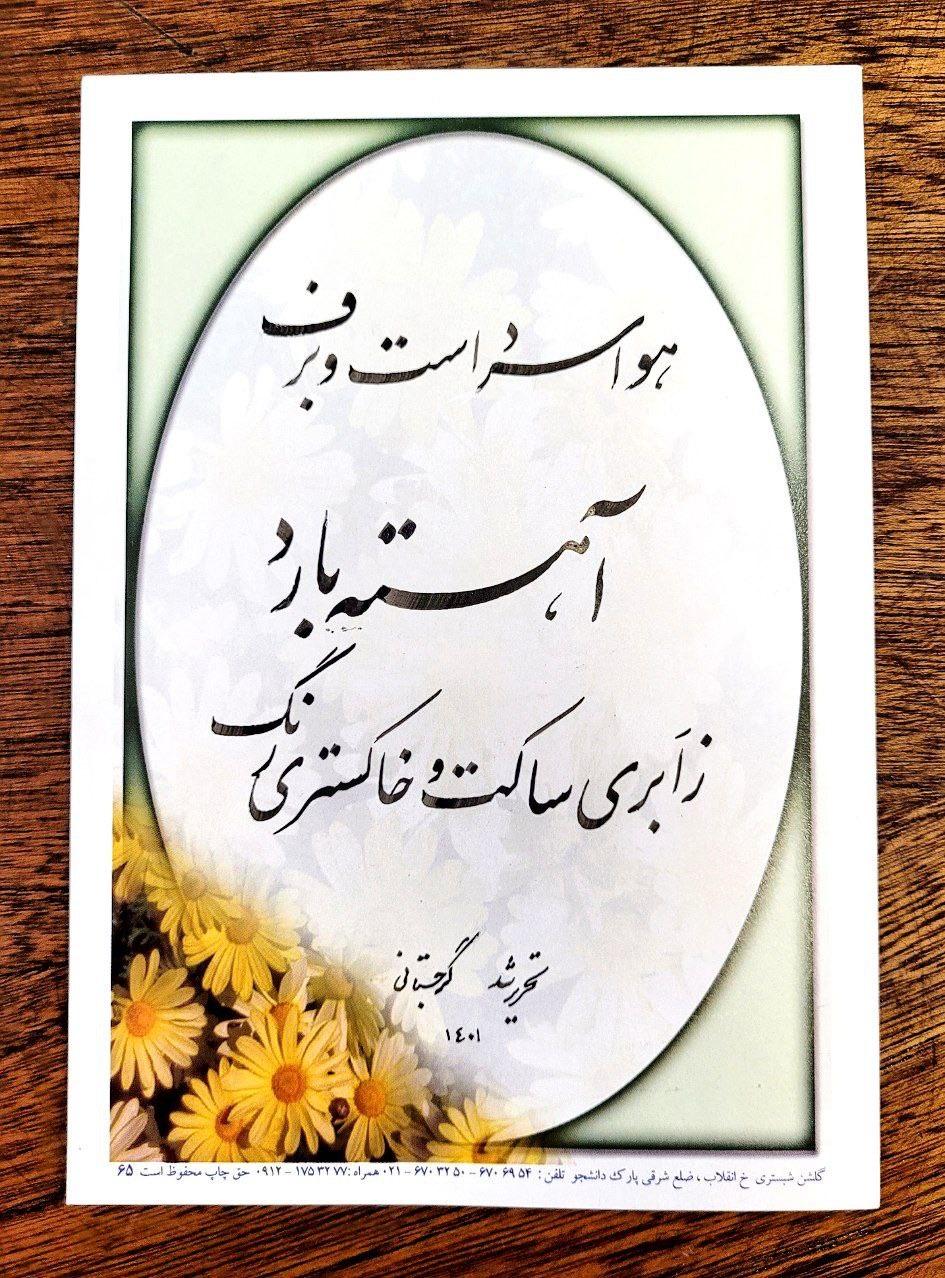 هوا سرد است و برف
آهسته بارد
زَابری ساکت و خاکستری رنگ
تحریر شد گرجستانی
۱٤۰۱
گلشن شبستری خ انقلاب ، ضلع شرقی پارک دانشجو تلفن : ۶۷۰ ۶۹ ۵۴ – ۶۷۰ ۳۲ ۵۰ – ۰۲۱ همراه :۷۷ ۳۲ ۱۷۵ – ۰۹۱۲ حق چاپ محفوظ است ۶۵